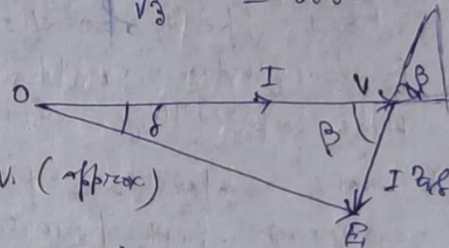 √3
O I V β
δ β
V. (approx)
I Zs
E